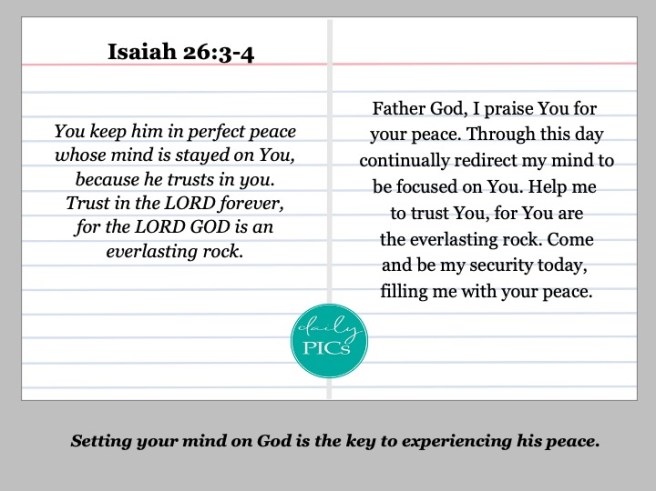 Isaiah 26:3-4
You keep him in perfect peace
whose mind is stayed on You,
because he trusts in you.
Trust in the LORD forever,
for the LORD GOD is an
everlasting rock.
Father God, I praise You for
your peace. Through this day
continually redirect my mind to
be focused on You. Help me
to trust You, for You are
the everlasting rock. Come
and be my security today,
filling me with your peace.
daily
PICs
Setting your mind on God is the key to experiencing his peace.